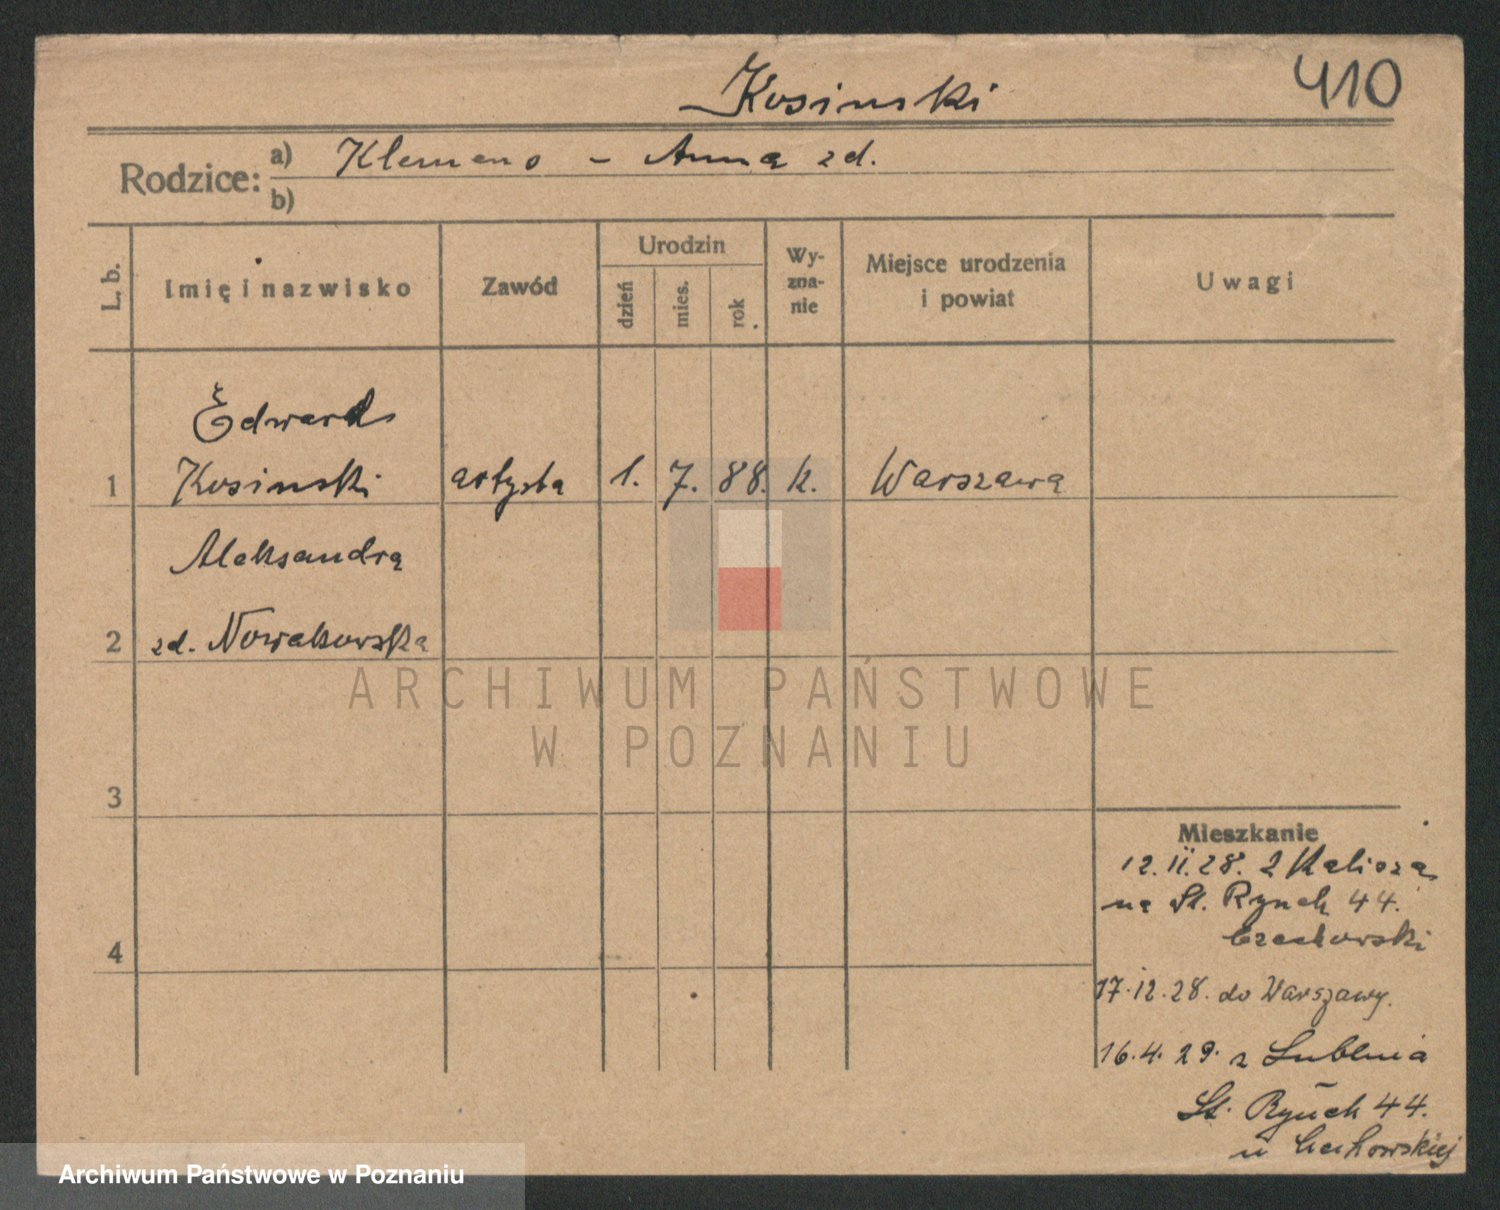 Kosinski
410
Rodzice:
a) Klemens - Anna zd.
b)
L. b.
Imię i nazwisko
Zawód
Urodzin
dzień
mies.
rok
Wy-
zna-
nie
Miejsce urodzenia
i powiat
Uwagi
Edward
1 Kosinski artysta 1. 7. 88. k. Warszawa
Aleksandra
2 zd. Nowakowska
3
4
Mieszkanie
12.II.28. z Kalisza
na St. Rynek 44.
Czechowski
17.12.28. do Warszawy.
16.4.29. z Lublina
St. Rynek 44.
u Czechowskiej
ARCHIWUM PAŃSTWOWE
W POZNANIU
Archiwum Państwowe w Poznaniu